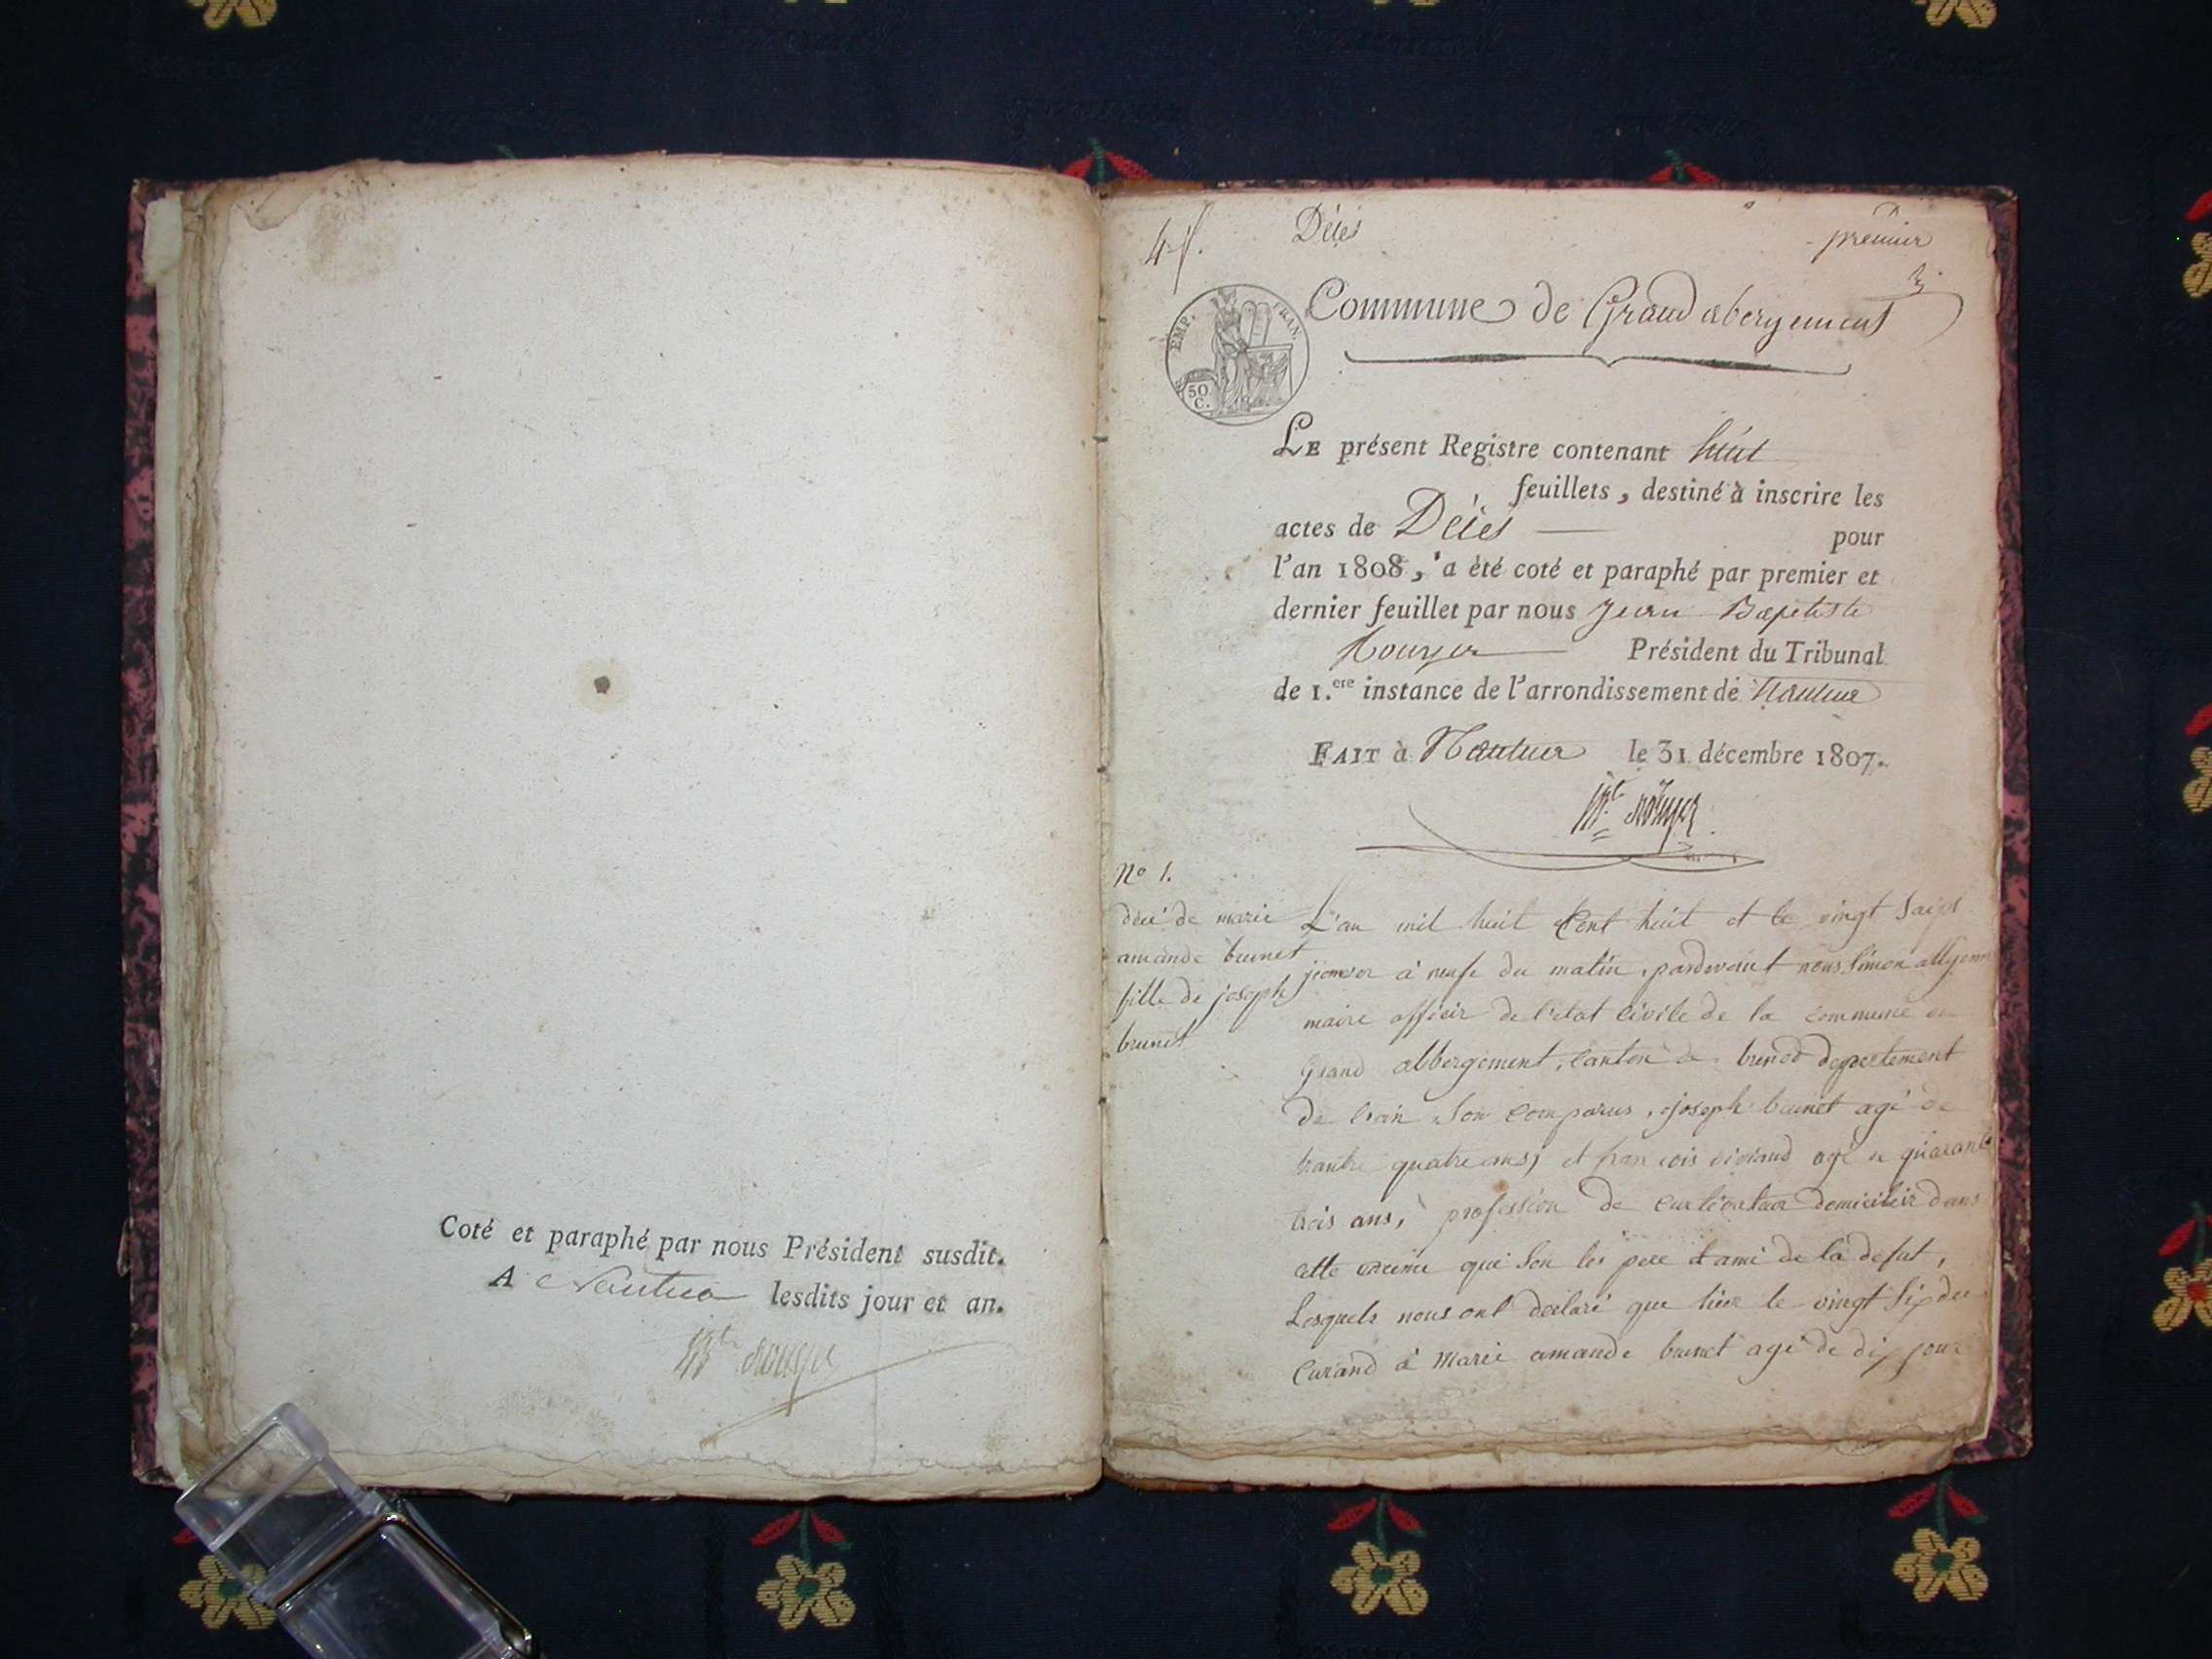 Coté et paraphé par nous Président susdit.
A Nantua lesdits jour et an.
Décés
premier
Commune de Grand abergement
EMP. FRAN.
50 C.
LE présent Registre contenant huit
feuillets, destiné à inscrire les
actes de Décés pour
l'an 1808, a été coté et paraphé par premier et
dernier feuillet par nous Jean Baptiste
Rouyer Président du Tribunal
de 1.ere instance de l'arrondissement de Nantua
FAIT à Nantua le 31 décembre 1807.
No 1.
décé de marie
amande brunet
fille de joseph
brunet
L'an mil huit Cent huit et le vingt saipt
janvier à neufe du matin, pardevant nous Simon
maire officir de l'etat civile de la commune du
grand abbergement, canton de brenod departement
de l'ain son comparus, joseph brunet agé de
trantre quatre ans, et francois viviand agé de quarante
trois ans, profession de cultivateur domicilié dans
cette comune qui son les pere et ami de la defut,
Lesquels nous ont declaré que hier le vingt six du
Curand à Marie amande brunet agé de dix jour